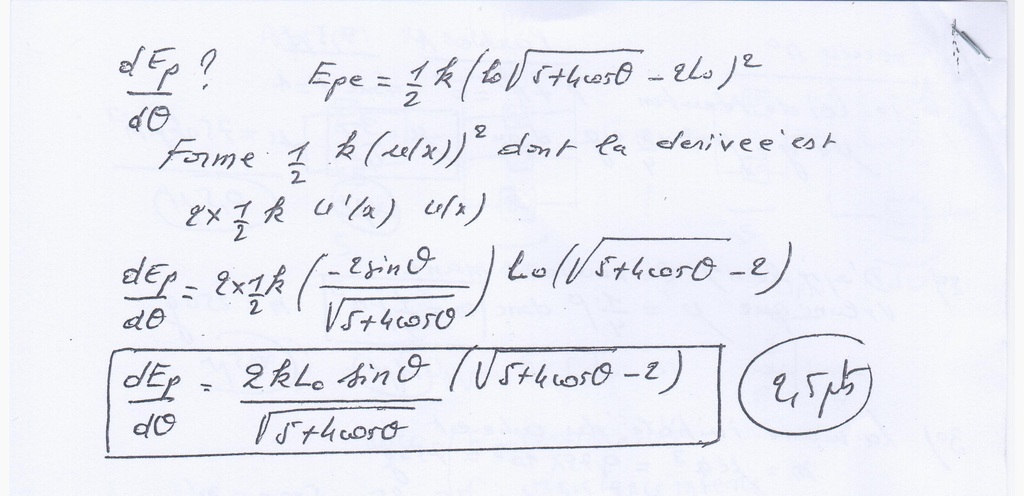 dEp/dθ ? Epe = 1/2 k (l₀√(5+4cosθ) − 2L₀)²
Forme 1/2 k (u(x))² dont la derivée est
2 × 1/2 k u'(x) u(x)
dEp/dθ = 2×1/2 k (−2sinθ/√(5+4cosθ)) L₀ (√(5+4cosθ) − 2)
dEp/dθ = 2kL₀ sinθ/√(5+4cosθ) (√(5+4cosθ) − 2)
2,5 pts